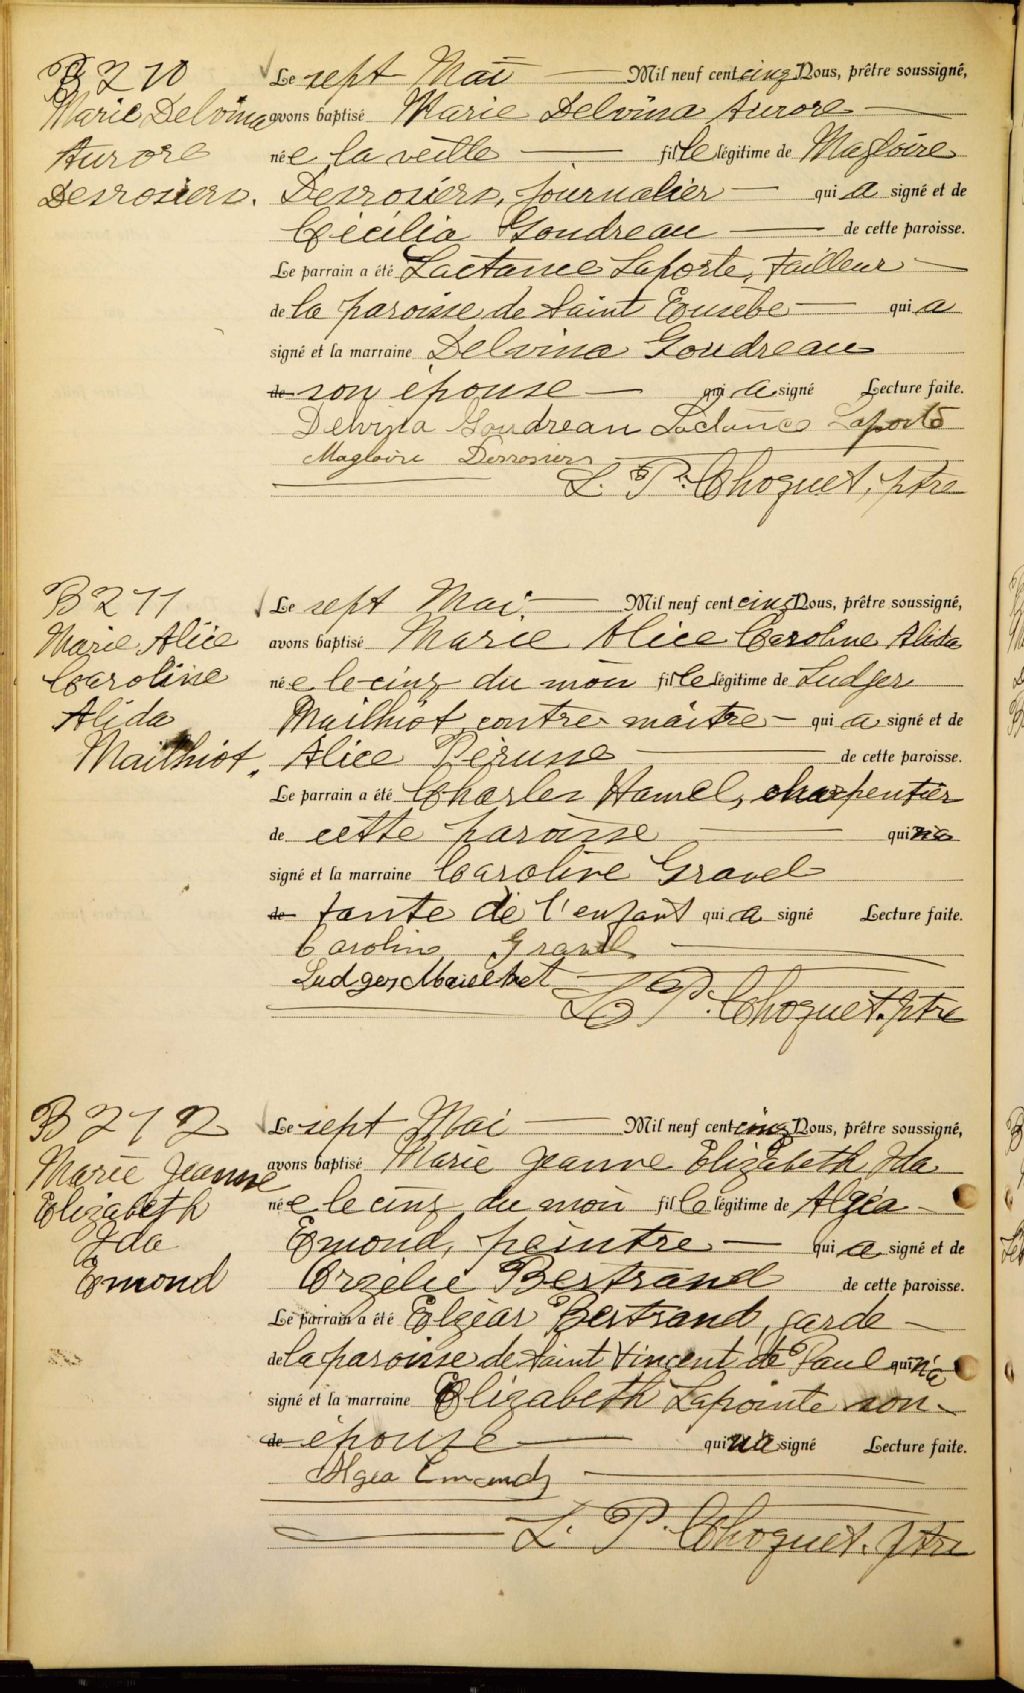 B 210
Marie Delvina
Aurore
Desrosiers.
Le sept Mai Mil neuf cent cinq Nous, prêtre soussigné,
avons baptisé Marie Delvina Aurore
née la veille fille légitime de Magloire
Desrosiers, journalier qui a signé et de
Cécilia Goudreau de cette paroisse.
Le parrain a été Lactance Laporte, tailleur
de la paroisse de Saint Eusèbe qui a
signé et la marraine Delvina Goudreau
de son épouse qui a signé Lecture faite.
Delvina Goudreau Lactance Laporte
Magloire Desrosiers
L. P. Choquet, ptre
B 211
Marie Alice
Caroline
Alida
Mailhiot.
Le sept Mai Mil neuf cent cinq Nous, prêtre soussigné,
avons baptisé Marie Alice Caroline Alida
née le cinq du mois fille légitime de Ludger
Mailhiot contre-maître qui a signé et de
Alice Pérusse de cette paroisse.
Le parrain a été Charles Hamel, charpentier
de cette paroisse qui n'a
signé et la marraine Caroline Gravel
de tante de l'enfant qui a signé Lecture faite.
Caroline Gravel
Ludger Mailhot
L. P. Choquet, ptre
B 212
Marie Jeanne
Elizabeth
Ida
Emond
Le sept Mai Mil neuf cent cinq Nous, prêtre soussigné,
avons baptisé Marie Jeanne Elizabeth Ida
née le cinq du mois fille légitime de Algéa
Emond, peintre qui a signé et de
Orgélie Bertrand de cette paroisse.
Le parrain a été Elgéar Bertrand, garde
de la paroisse de Saint Vincent de Paul qui n'a
signé et la marraine Elizabeth Lapointe son
de épouse qui n'a signé Lecture faite.
Algea Emond
L. P. Choquet, ptre